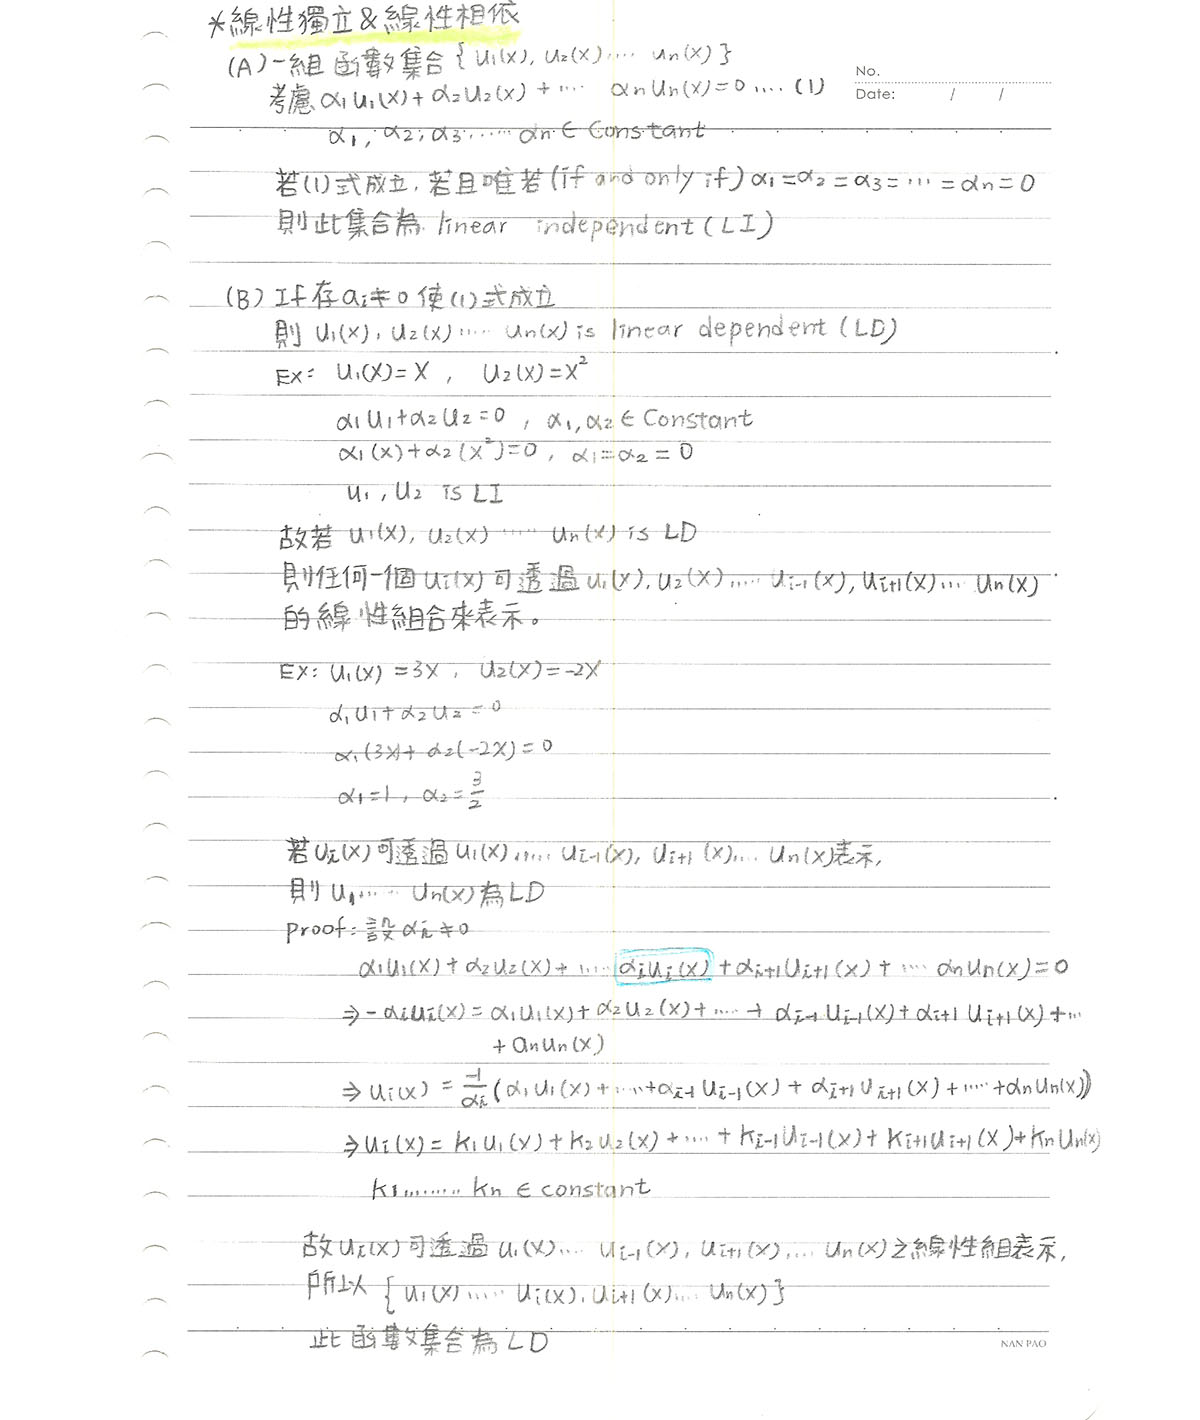 *線性獨立&線性相依
(A)一組函數集合{u₁(x), u₂(x)‥‥ uₙ(x)}
No.
考慮 α₁u₁(x)+α₂u₂(x)+‥‥ αₙuₙ(x)=0‥‥(1)
Date: / /
α₁, α₂, α₃‥‥‥αₙ∈Constant
若(1)式成立,若且唯若(if and only if)α₁=α₂=α₃=‥‥=αₙ=0
則此集合為 linear independent(LI)
(B)If存aᵢ≠0使(1)式成立
則 u₁(x), u₂(x)‥‥ uₙ(x) is linear dependent(LD)
Ex: u₁(x)=x , u₂(x)=x²
α₁u₁+α₂u₂=0 , α₁,α₂∈Constant
α₁(x)+α₂(x²)=0, α₁=α₂=0
u₁, u₂ is LI
故若 u₁(x), u₂(x)‥‥ uₙ(x) is LD
則任何一個uᵢ(x)可透過u₁(x),u₂(x)‥‥ uᵢ₋₁(x),uᵢ₊₁(x)‥‥ uₙ(x)
的線性組合來表示。
Ex: u₁(x)=3x , u₂(x)=-2x
α₁u₁+α₂u₂=0
α₁(3x)+α₂(-2x)=0
α₁=1, α₂=3/2
若uᵢ(x)可透過u₁(x)‥‥‥uᵢ₋₁(x), uᵢ₊₁(x)‥‥uₙ(x)表示,
則u₁‥‥ uₙ(x)為LD
proof:設αᵢ≠0
α₁u₁(x)+α₂u₂(x)+‥‥αᵢuᵢ(x)+αᵢ₊₁uᵢ₊₁(x)+‥‥αₙuₙ(x)=0
⇒-αᵢuᵢ(x)=α₁u₁(x)+α₂u₂(x)+‥‥+αᵢ₋₁uᵢ₋₁(x)+αᵢ₊₁uᵢ₊₁(x)+‥‥
+aₙuₙ(x)
⇒uᵢ(x)=-1/αᵢ(α₁u₁(x)+‥‥+αᵢ₋₁uᵢ₋₁(x)+αᵢ₊₁uᵢ₊₁(x)+‥‥+αₙuₙ(x))
⇒uᵢ(x)=k₁u₁(x)+k₂u₂(x)+‥‥+kᵢ₋₁uᵢ₋₁(x)+kᵢ₊₁uᵢ₊₁(x)+kₙuₙ(x)
k₁‥‥‥‥kₙ∈constant
故uᵢ(x)可透過u₁(x)‥‥ uᵢ₋₁(x), uᵢ₊₁(x)‥‥ uₙ(x)之線性組表示,
所以{u₁(x)‥‥‥uᵢ(x),uᵢ₊₁(x)‥‥uₙ(x)}
此函數集合為LD
NAN PAO